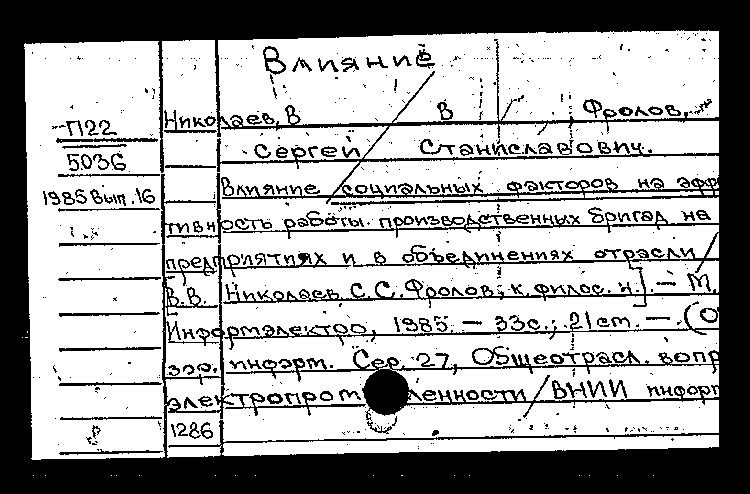 Влияние
П22 Николаев, В В Фролов,
5036 Сергей Станиславович.
1985 Вып. 16 Влияние социальных факторов на эфф
тивность работы производственных бригад на
предприятиях и в объединениях отрасли /
[В.В. Николаев, С.С. Фролов, к. филос. н.]. — М.
Информэлектро, 1985. — 33с.; 21см. — (О
зор. информ. Сер. 27, Общеотрасл. вопр
электропром ленности / ВНИИ информ
1286